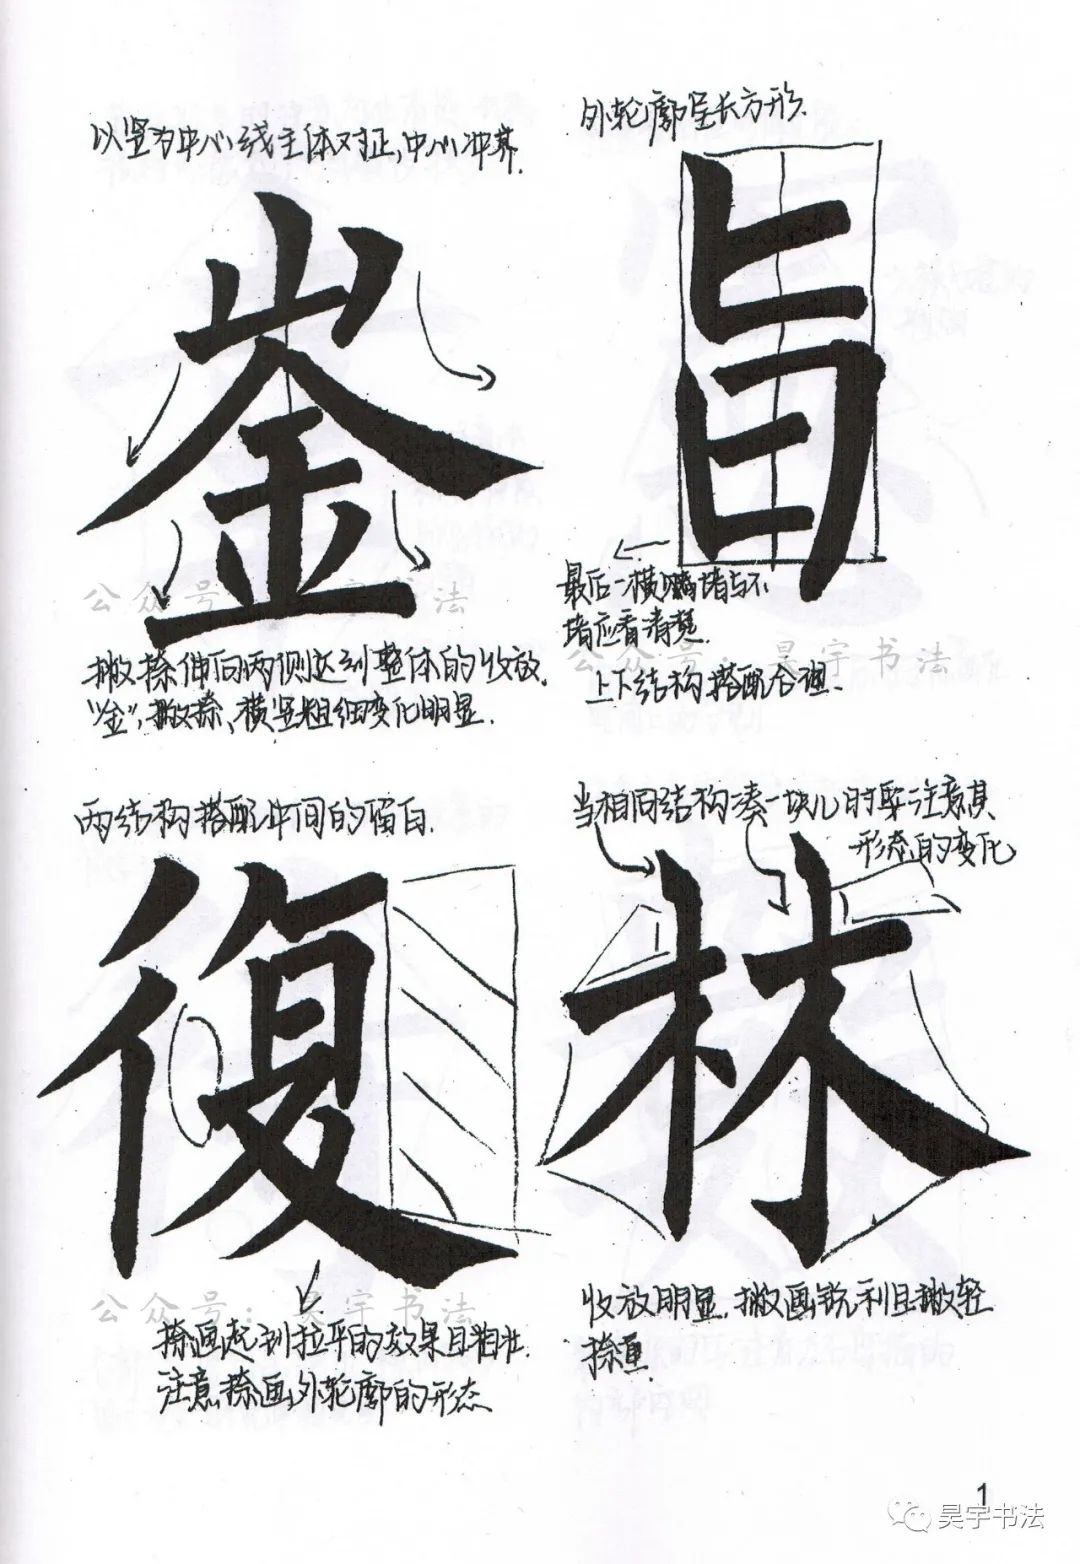 以竖为中心线主体对正,中心冲齐.
崟
撇捺伸向两侧达到整体的收放.
"金",撇捺、横竖粗细变化明显.
外轮廓呈长方形.
旨
最后一横
堵应看清楚.
上下结构搭配合理.
公众号：昊宇书法
公众号：昊宇书法
两结构搭配中间的留白.
復
捺画起到拉平的效果且粗壮.
注意捺画外轮廓的形态
当相同结构凑一块儿时要注意其
形态的变化
林
收放明显.撇画锐利且撇轻
捺重.
公众号：昊宇书法
1
昊宇书法